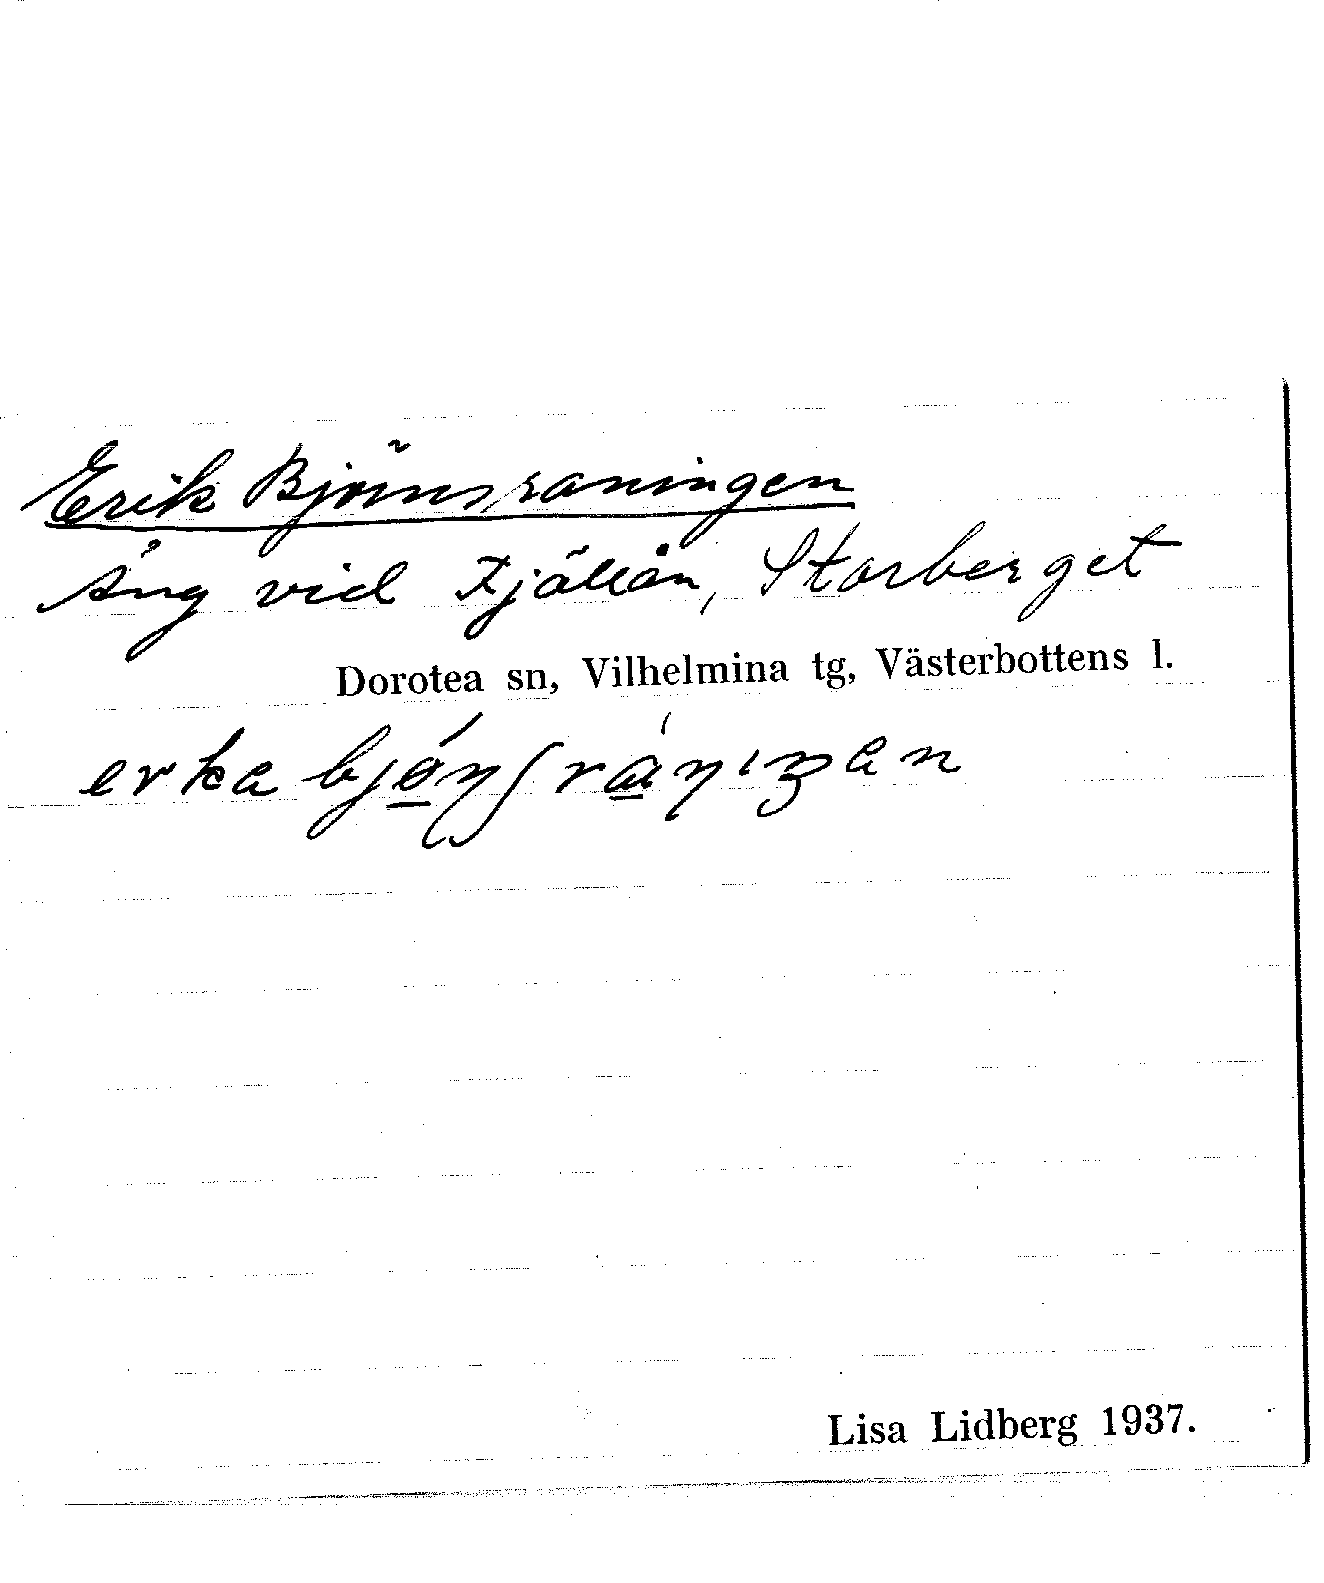 Erik Björnsraningen
Äng vid Fjällån, Storberget
Dorotea sn, Vilhelmina tg, Västerbottens l.
erka bjǿ̲ŋʃrá̲ŋıʒen
Lisa Lidberg 1937.